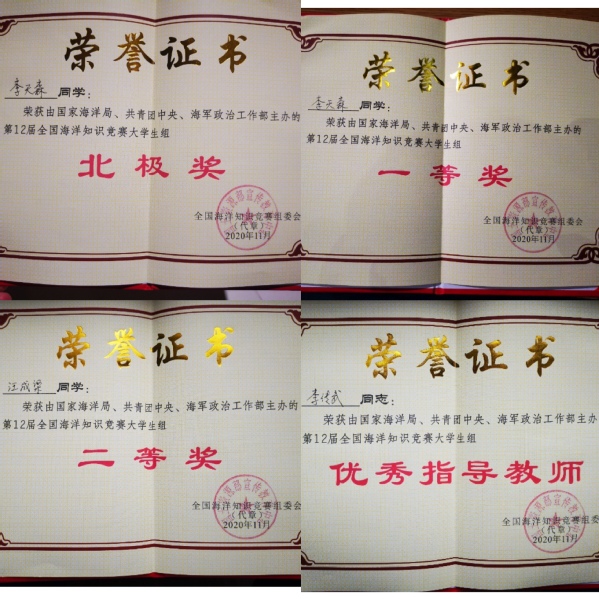 荣誉证书
李天森 同学：
荣获由国家海洋局、共青团中央、海军政治工作部主办的
第12届全国海洋知识竞赛大学生组
北极奖
全国海洋知识竞赛组委会
（代章）
2020年11月
荣誉证书
李天森 同学：
荣获由国家海洋局、共青团中央、海军政治工作部主办的
第12届全国海洋知识竞赛大学生组
一等奖
全国海洋知识竞赛组委会
（代章）
2020年11月
荣誉证书
汪成梁 同学：
荣获由国家海洋局、共青团中央、海军政治工作部主办的
第12届全国海洋知识竞赛大学生组
二等奖
全国海洋知识竞赛组委会
（代章）
2020年11月
荣誉证书
李传武 同志：
荣获由国家海洋局、共青团中央、海军政治工作部主办
第12届全国海洋知识竞赛大学生组
优秀指导教师
全国海洋知识竞赛组委
（代章）
2020年11月